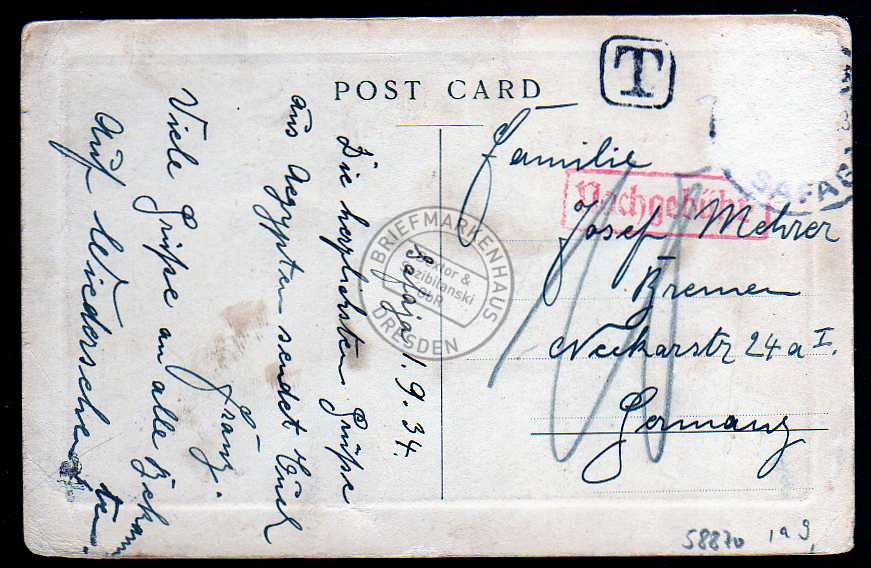 POST CARD
T
SAFAG
Nachgebühr
Familie
Josef Mehrer
Bremen
Neckarstr 24a I.
Germany
Safaja, 1.9.34.
Die herzlichsten Grüße
aus Aegypten sendet Euch
Franz.
Viele Grüße an alle Bekannten.
Auf Wiedersehen
BRIEFMARKENHAUS
DRESDEN
GbR
58870